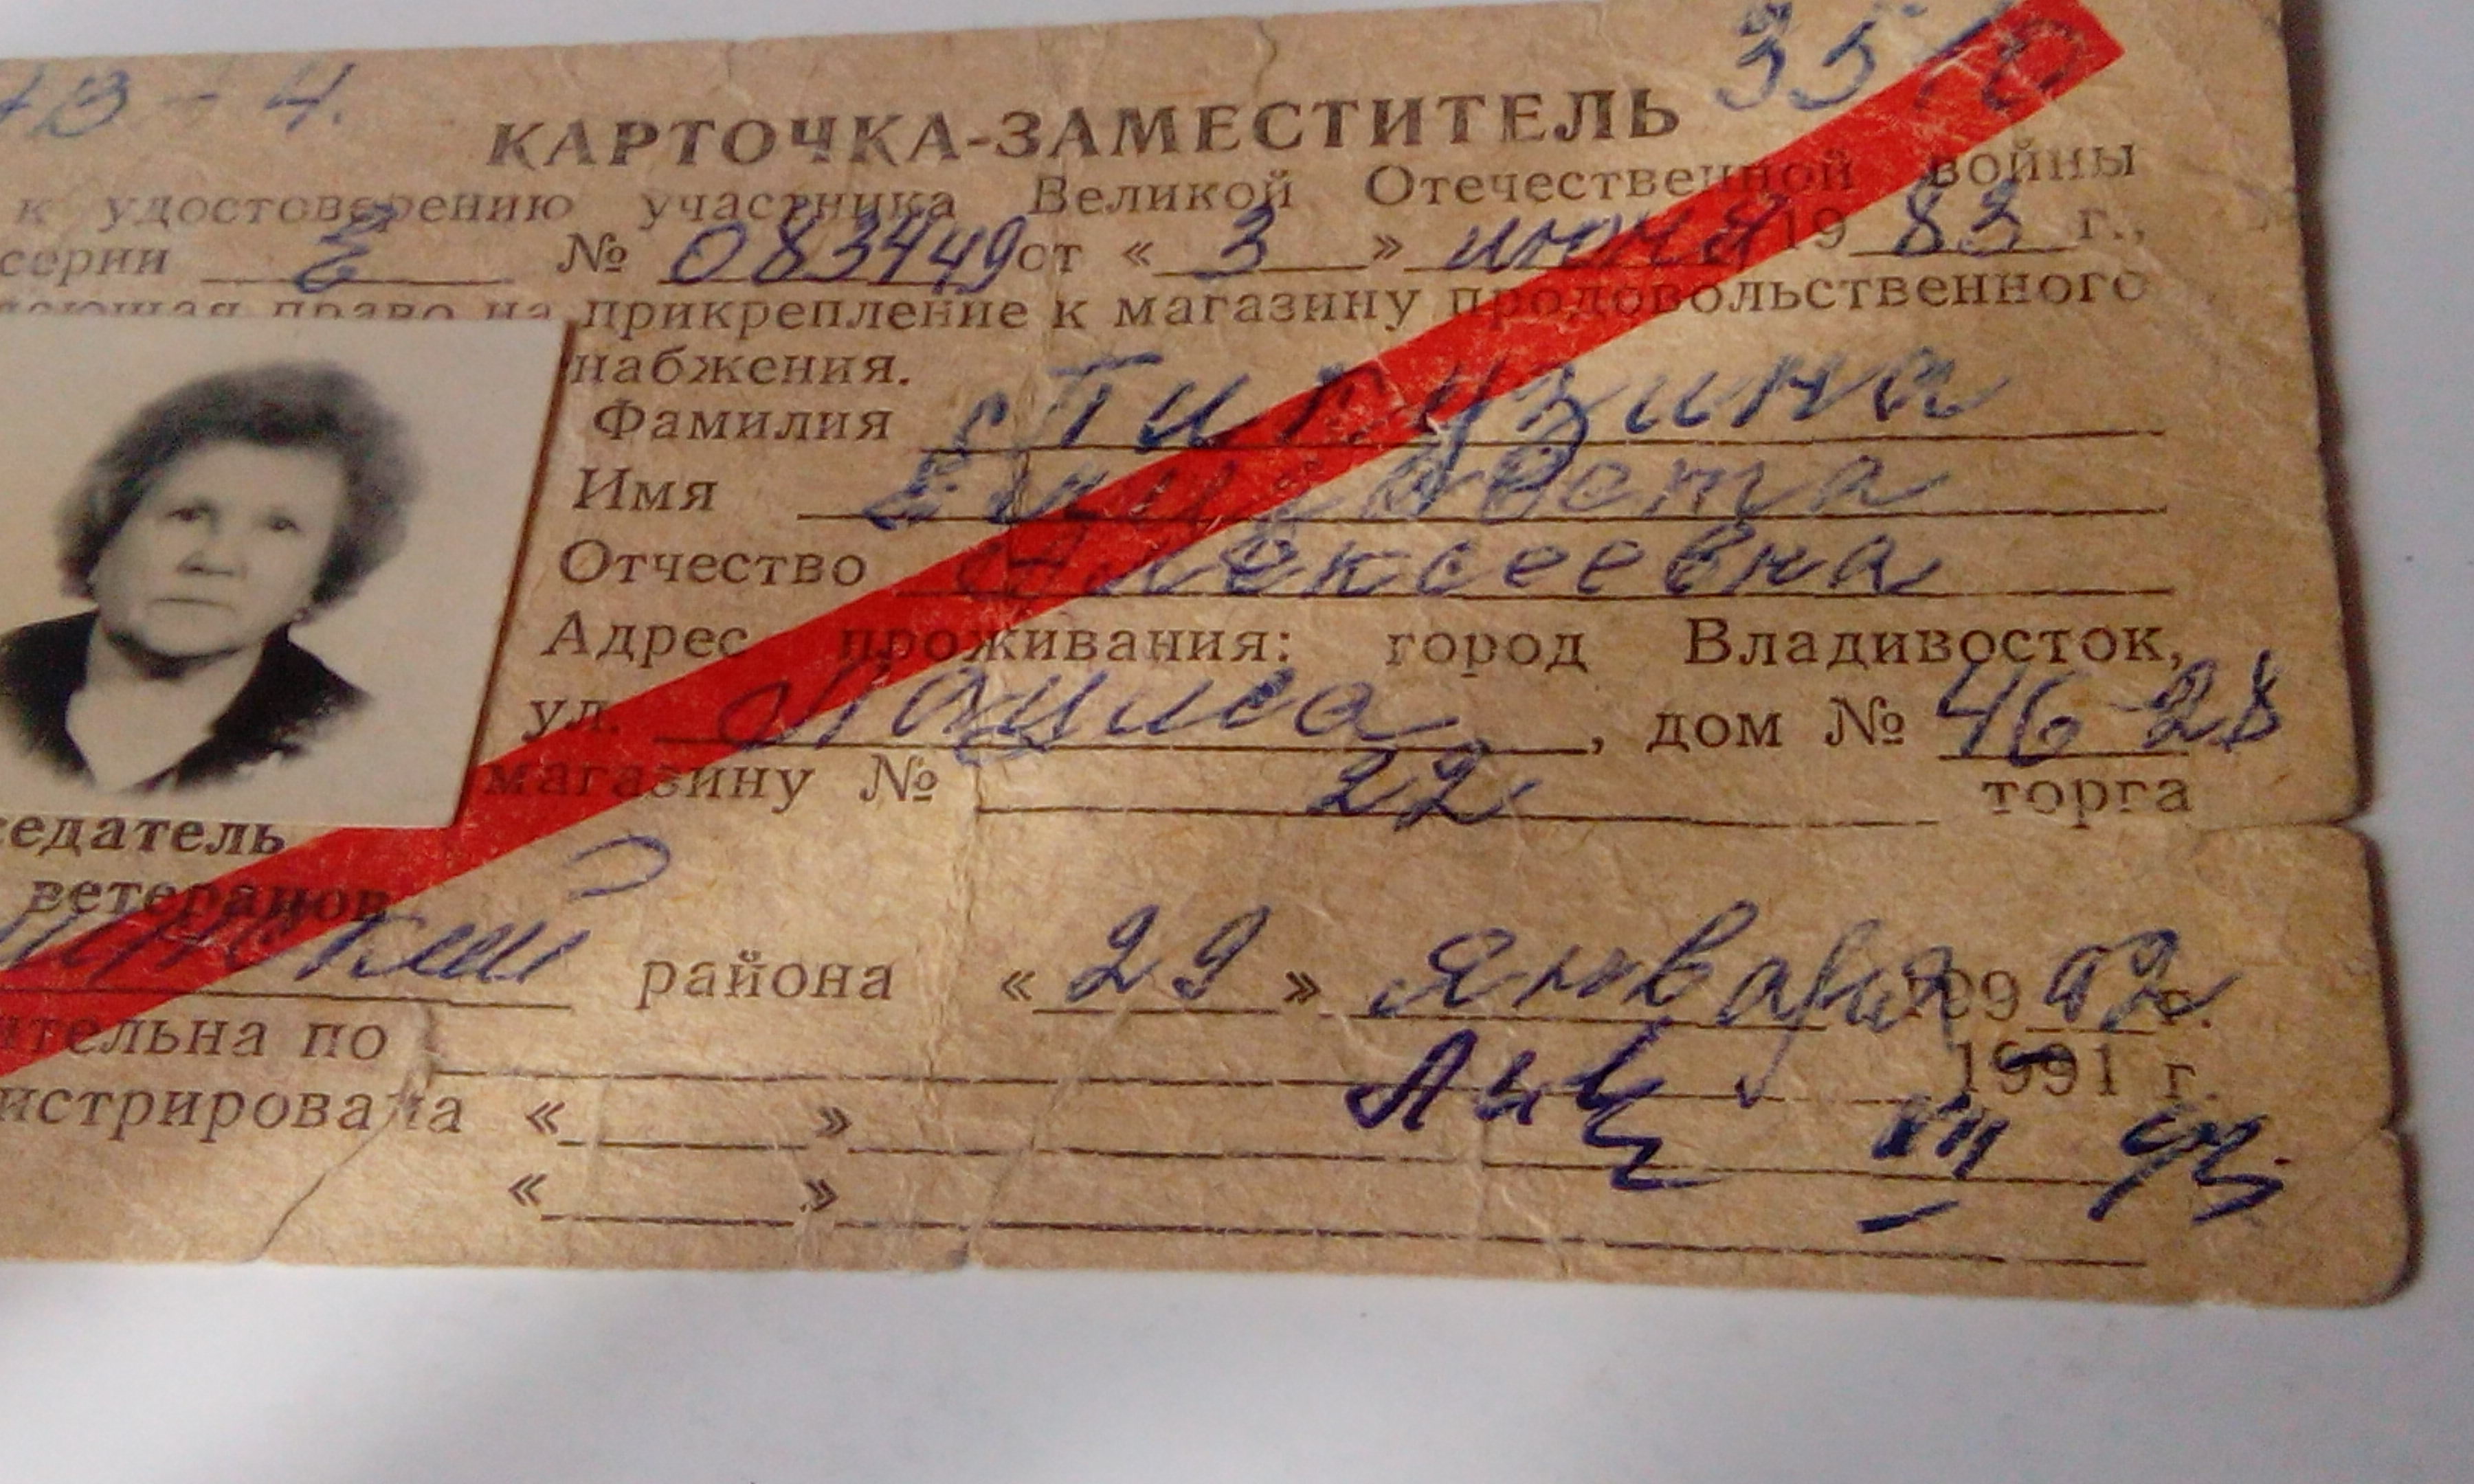 13-4. 3510
КАРТОЧКА-ЗАМЕСТИТЕЛЬ
к удостоверению участника Великой Отечественной войны
серии Е № 083449 от « 3 » июня 19 83 г.,
дающая право на прикрепление к магазину продовольственного
набжения.
Фамилия
Имя Елизавета
Отчество Алексеевна
Адрес проживания: город Владивосток,
ул. , дом № 46-28
магазину № 22 торга
седатель
ветеранов
района « 29 » января 199 92 г.
ительна по 1991 г.
истрирована « »
« »